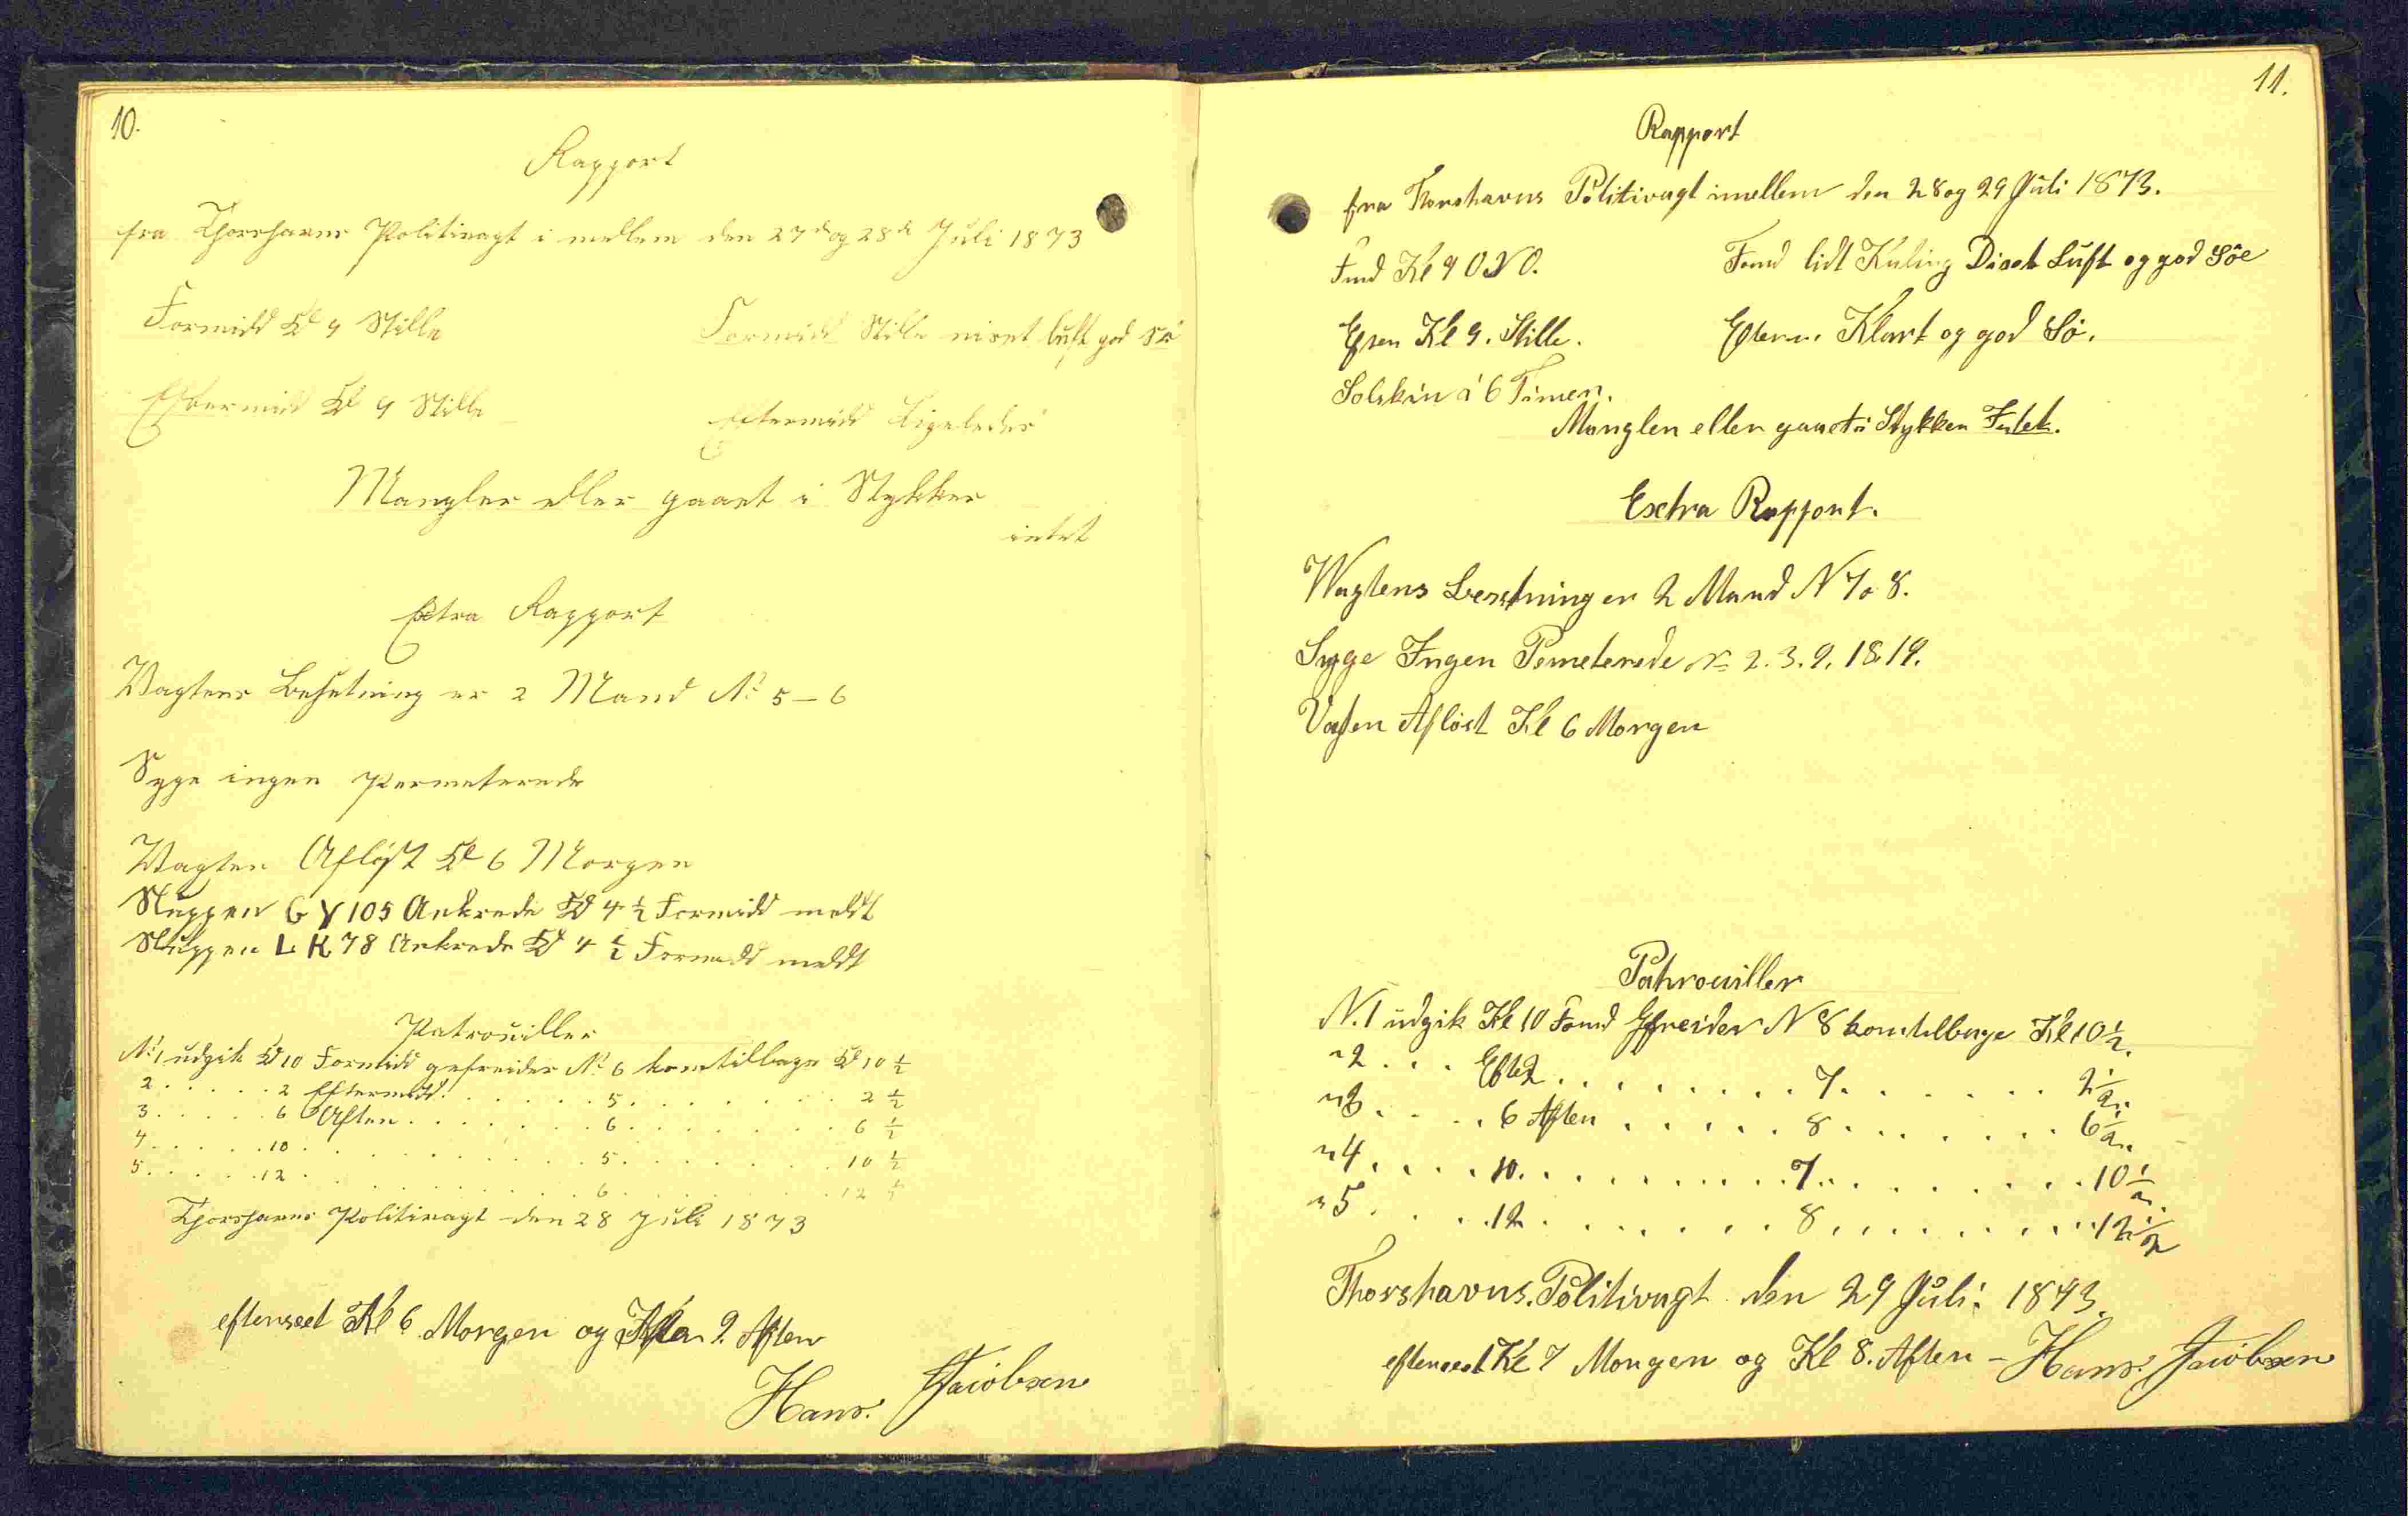 10.
Rapport
fra Thorshavns Politivagt i mellem den 27de og 28de Juli 1873
Formidd Kl 9 Stille
Formidd Stille luft god Sø
Eftermidd Kl 9 Stille
Eftermidd Ligeledes
Mangler eller gaaet i Stykker
intet
Extra Rapport
Vagtens Besetning er 2 Mand No 5 - 6
Syge ingen Permeterede
Vagten Afløst Kl 6 Morgen
Sluppen GY 105 Ankrede Kl 4 1/2 Formidd meldt
Sluppen LK 78 Ankrede Kl 4 1/2 Formidd meldt
Patrouiller
No 1 udgik Kl 10 Formidd gefreider No 6 kom tilbage Kl 10 1/2
2 . . . . . 2 Eftermidd . . . . . 5 . . . . . 2 1/2
3 . . . . . 6 Aften . . . . . 6 . . . . . 6 1/2
4 . . . . . 10 . . . . . 5 . . . . . 10 1/2
5 . . . . . 12 . . . . . 6 . . . . . 12 1/2
Thorshavns Politivagt den 28 Juli 1873
efterseet Kl 6 Morgen og 9. Aften
Hans. Jacobsen
11.
Rapport
fra Thorshavns Politivagt imellem den 28 og 29 Juli 1873.
Fmd Kl 9 ONO.
Fomd lidt Kuling Diset Luft og god Söe
Kl 9. Stille.
Klart og god Sö.
Solskin i 6 Timer.
Mangler eller gaaet i Stykker
Extra Rapport.
Wagtens Besetning er 2 Mand N 7 o 8.
Syge Ingen Pemeterede No 2. 3. 9. 18. 19.
Afløst Kl 6 Morgen
Patrouiller
N. 1 udgik Kl 10 Fomd Gfreider N 8 kom tilbage Kl 10 1/2.
" 2 . . . Eft 2 . . . . . 7 . . . . . 2 1/2.
" 3 . . . . 6 Aften . . . . . 8 . . . . . 6 1/2.
" 4 . . . . 10 . . . . . 7 . . . . . 10 1/2.
" 5 . . . . 12 . . . . . 8 . . . . . 12 1/2
Thorshavns. Politivagt den 29 Juli: 1873.
efterseet Kl 7 Morgen og Kl 8. Aften - Hans. Jacobsen